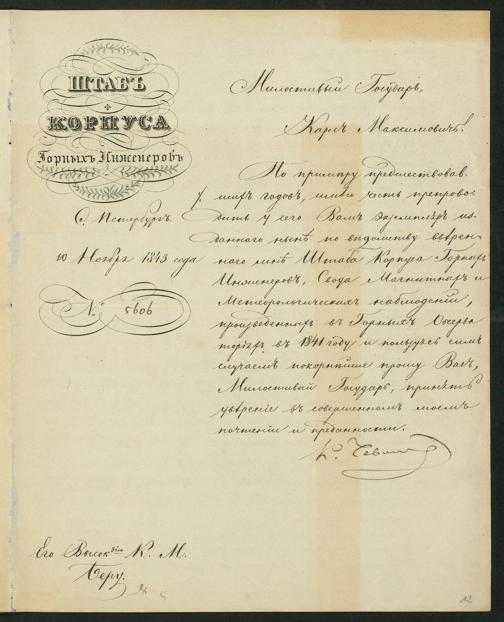 ШТАБЪ
КОРПУСА
Горныхъ Инженеровъ
С. Петербургъ.
10 Ноября 1843 года
№ 5606
Милостивый Государь,
Карлъ Максимовичъ!
По примѣру предшествовав-
шихъ годовъ, имѣю честь препрово-
дить у сего Вамъ экземпляръ из-
даннаго нынѣ по вѣдомству ввѣрен-
наго мнѣ Штаба Корпуса Горныхъ
Инженеровъ, Свода Магнитныхъ и
Метеорологическихъ наблюденій,
произведенныхъ въ Горныхъ Обсерва-
торіяхъ въ 1841 году и пользуясь симъ
случаемъ покорнѣйше прошу Васъ,
Милостивый Государь, принять
увѣреніе въ совершенномъ моемъ
почтеніи и преданности.
К. Чевкинъ
Его Высокдію К. М.
Беру.
12